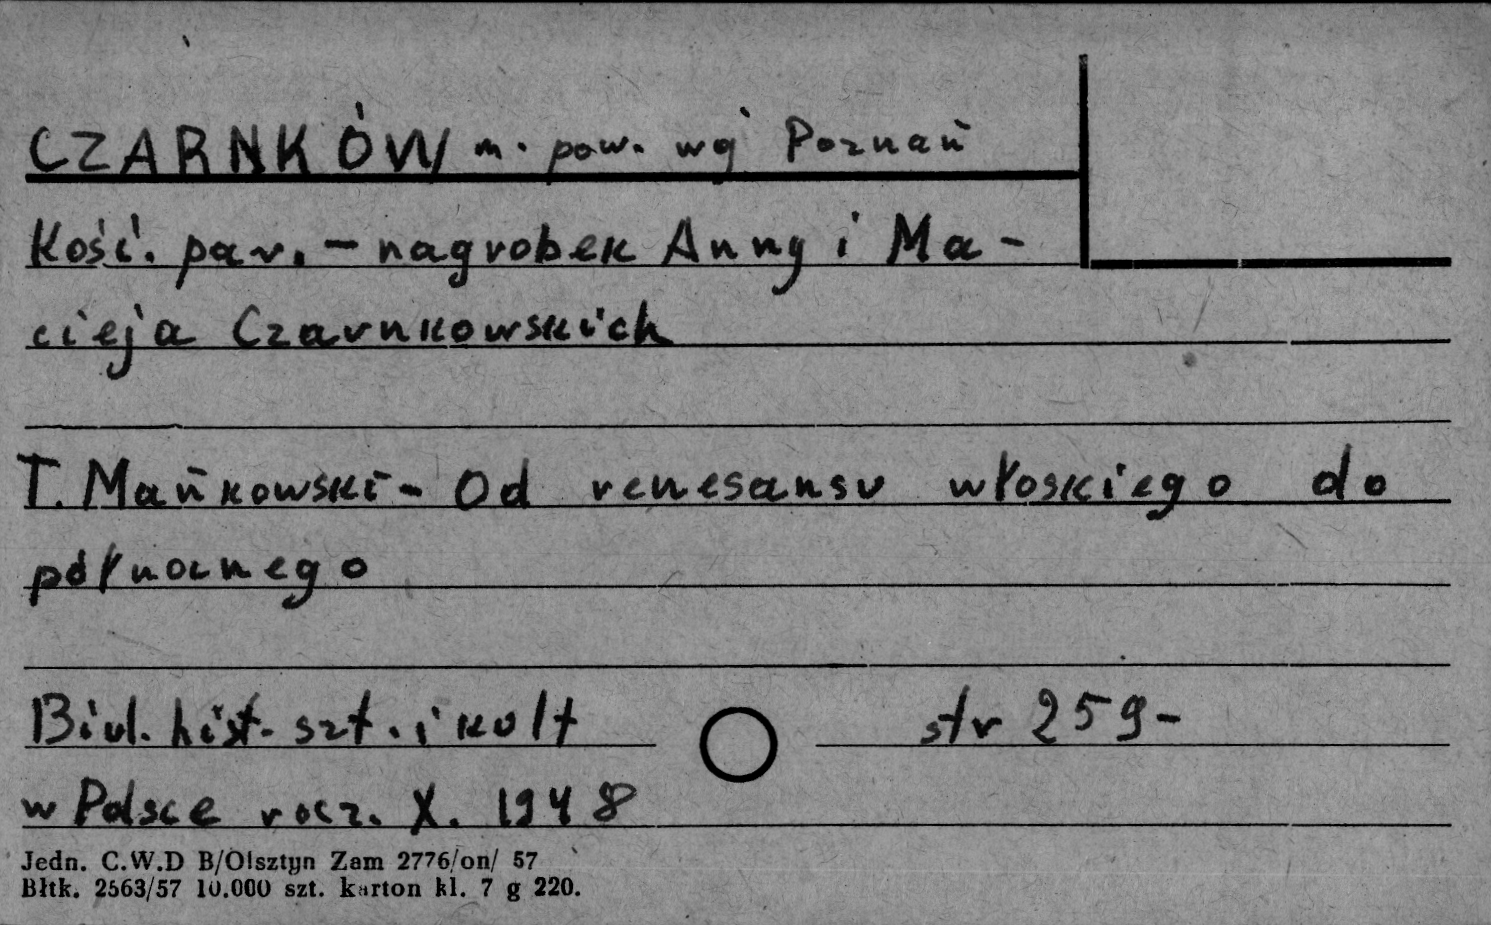 CZARNKÓW m. pow. wj Poznań
Kość. par. – nagrobek Anny i Ma-
cieja Czarnkowskich
T. Mańkowski - Od renesansu włoskiego do
północnego
Biul. hist. szt. i kult
str 259-
w Polsce rocz. X. 1948
Jedn. C.W.D B/Olsztyn Zam 2776/on/ 57
Błtk. 2563/57 10.000 szt. karton kl. 7 g 220.